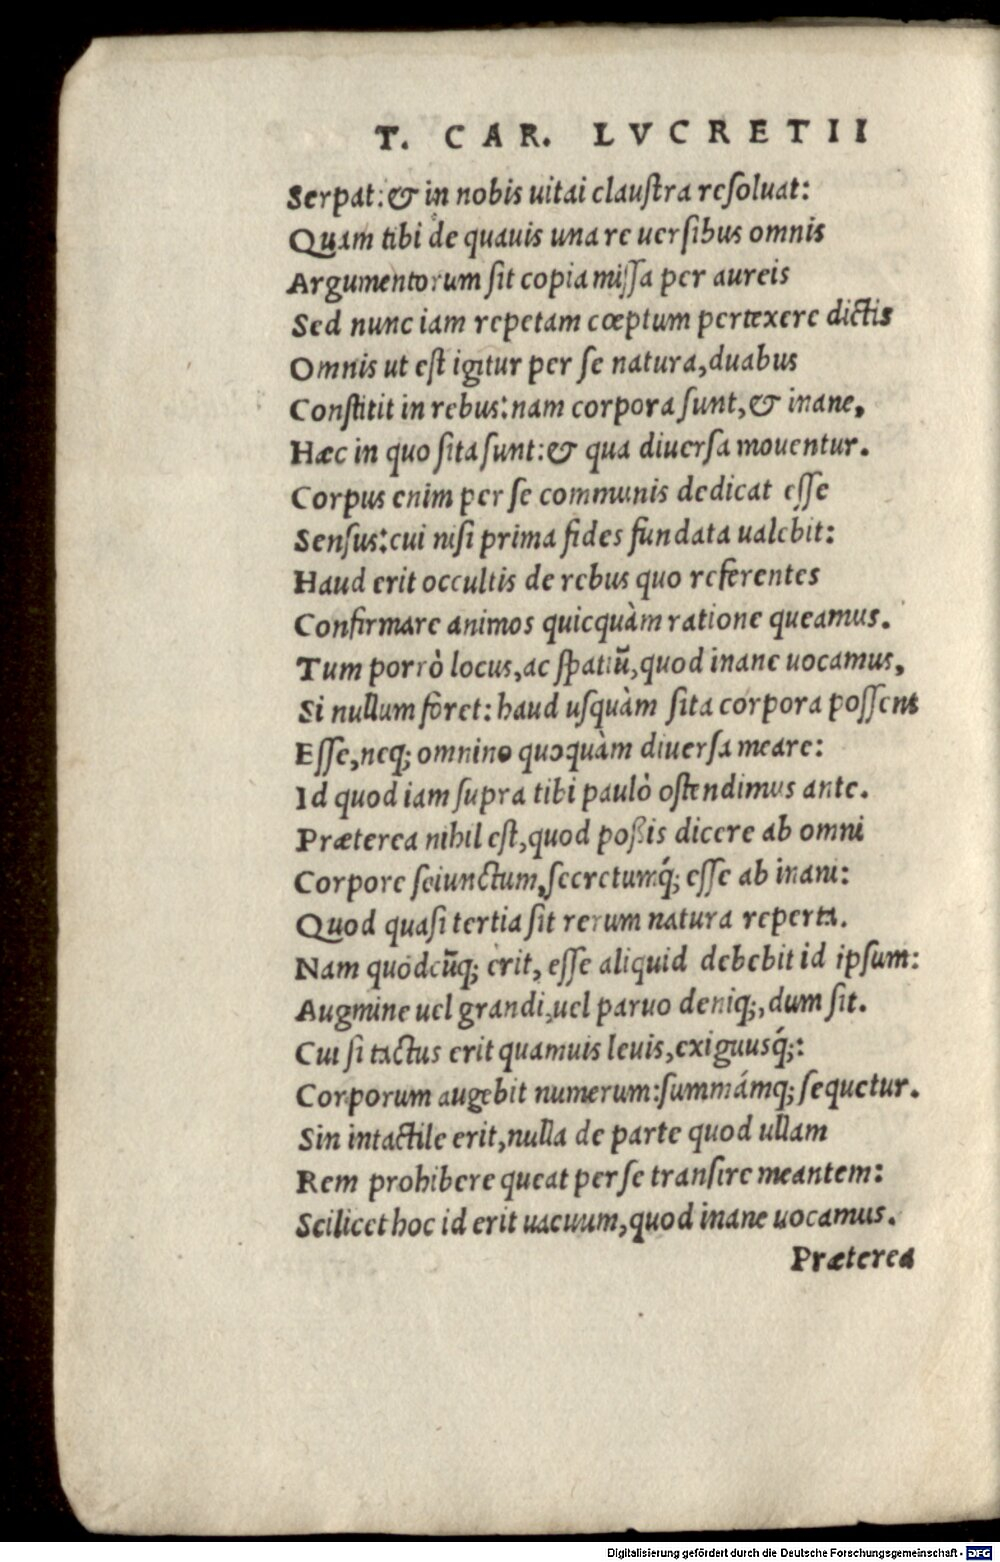 T. CAR. LVCRETII
Serpat: & in nobis uitai clauſtra reſoluat:
Quam tibi de quauis una re uerſibus omnis
Argumentorum ſit copia miſſa per aureis
Sed nunc iam repetam cœptum pertexere dictis
Omnis ut eſt igitur per ſe natura, duabus
Conſtitit in rebus: nam corpora ſunt, & inane,
Hæc in quo ſita ſunt: & qua diuerſa mouentur.
Corpus enim per ſe communis dedicat eſſe
Senſus: cui niſi prima fides fundata ualebit:
Haud erit occultis de rebus quo referentes
Confirmare animos quicquàm ratione queamus.
Tum porrò locus, ac ſpatiũ, quod inane uocamus,
Si nullum foret: haud uſquàm ſita corpora poſſent
Eſſe, neq; omnino quoquàm diuerſa meare:
Id quod iam ſupra tibi paulò oſtendimus ante.
Præterea nihil eſt, quod poßis dicere ab omni
Corpore ſeiunctum, ſecretumq́; eſſe ab inani:
Quod quaſi tertia ſit rerum natura reperta.
Nam quodcũq; erit, eſſe aliquid debebit id ipſum:
Augmine uel grandi, uel paruo deniq;, dum ſit.
Cui ſi tactus erit quamuis leuis, exiguusq́;:
Corporum augebit numerum: ſummámq; ſequetur.
Sin intactile erit, nulla de parte quod ullam
Rem prohibere queat per ſe tranſire meantem:
Scilicet hoc id erit uacuum, quod inane uocamus.
Præterea
Digitalisierung gefördert durch die Deutsche Forschungsgemeinschaft - DFG